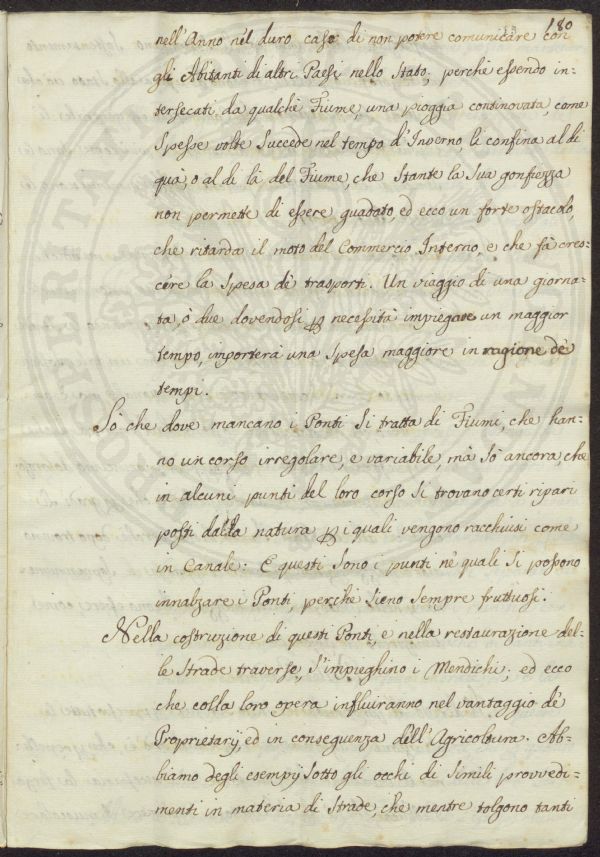 180
nell'Anno nel duro caso di non potere comunicare con
gli Abitanti di altri Paesi nello Stato; perchè essendo in-
tersecati da qualche Fiume, una pioggia continovata, come
spesse volte succede nel tempo d'Inverno li confina al di
quà, o al di là del Fiume, che stante la sua gonfiezza
non permette di essere guadato, ed ecco un forte ostacolo,
che ritarda il moto del Commercio Interno, e che fà cres-
cére la spesa dè trasporti. Un viaggio di una giorna-
ta, ò due dovendosi ꝑ necessità impiegare un maggior
tempo, importerà una spesa maggiore in ragione dè
tempi.
Sò che dove mancano i Ponti si tratta di Fiumi, che han-
no un corso irregolare, e variabile, mà sò ancora, che
in alcuni punti del loro corso si trovano certi ripari
posti dalla natura ꝑ i quali vengono racchiusi come
in Canale: E questi sono i punti nè quali si possono
innalzare i Ponti, perchè sieno sempre fruttuosi.
Nella costruzione di questi Ponti, e nella restaurazione del-
le Strade traverse, s'impieghino i Mendichi; ed ecco
che colla loro opera influiranno nel vantaggio dè
Proprietarij, ed in conseguenza dell'Agricoltura. Ab-
biamo degli esempij sotto gli occhi di simili provvedi-
menti in materia di Strade, che mentre tolgono tanti
PROSPERITATI